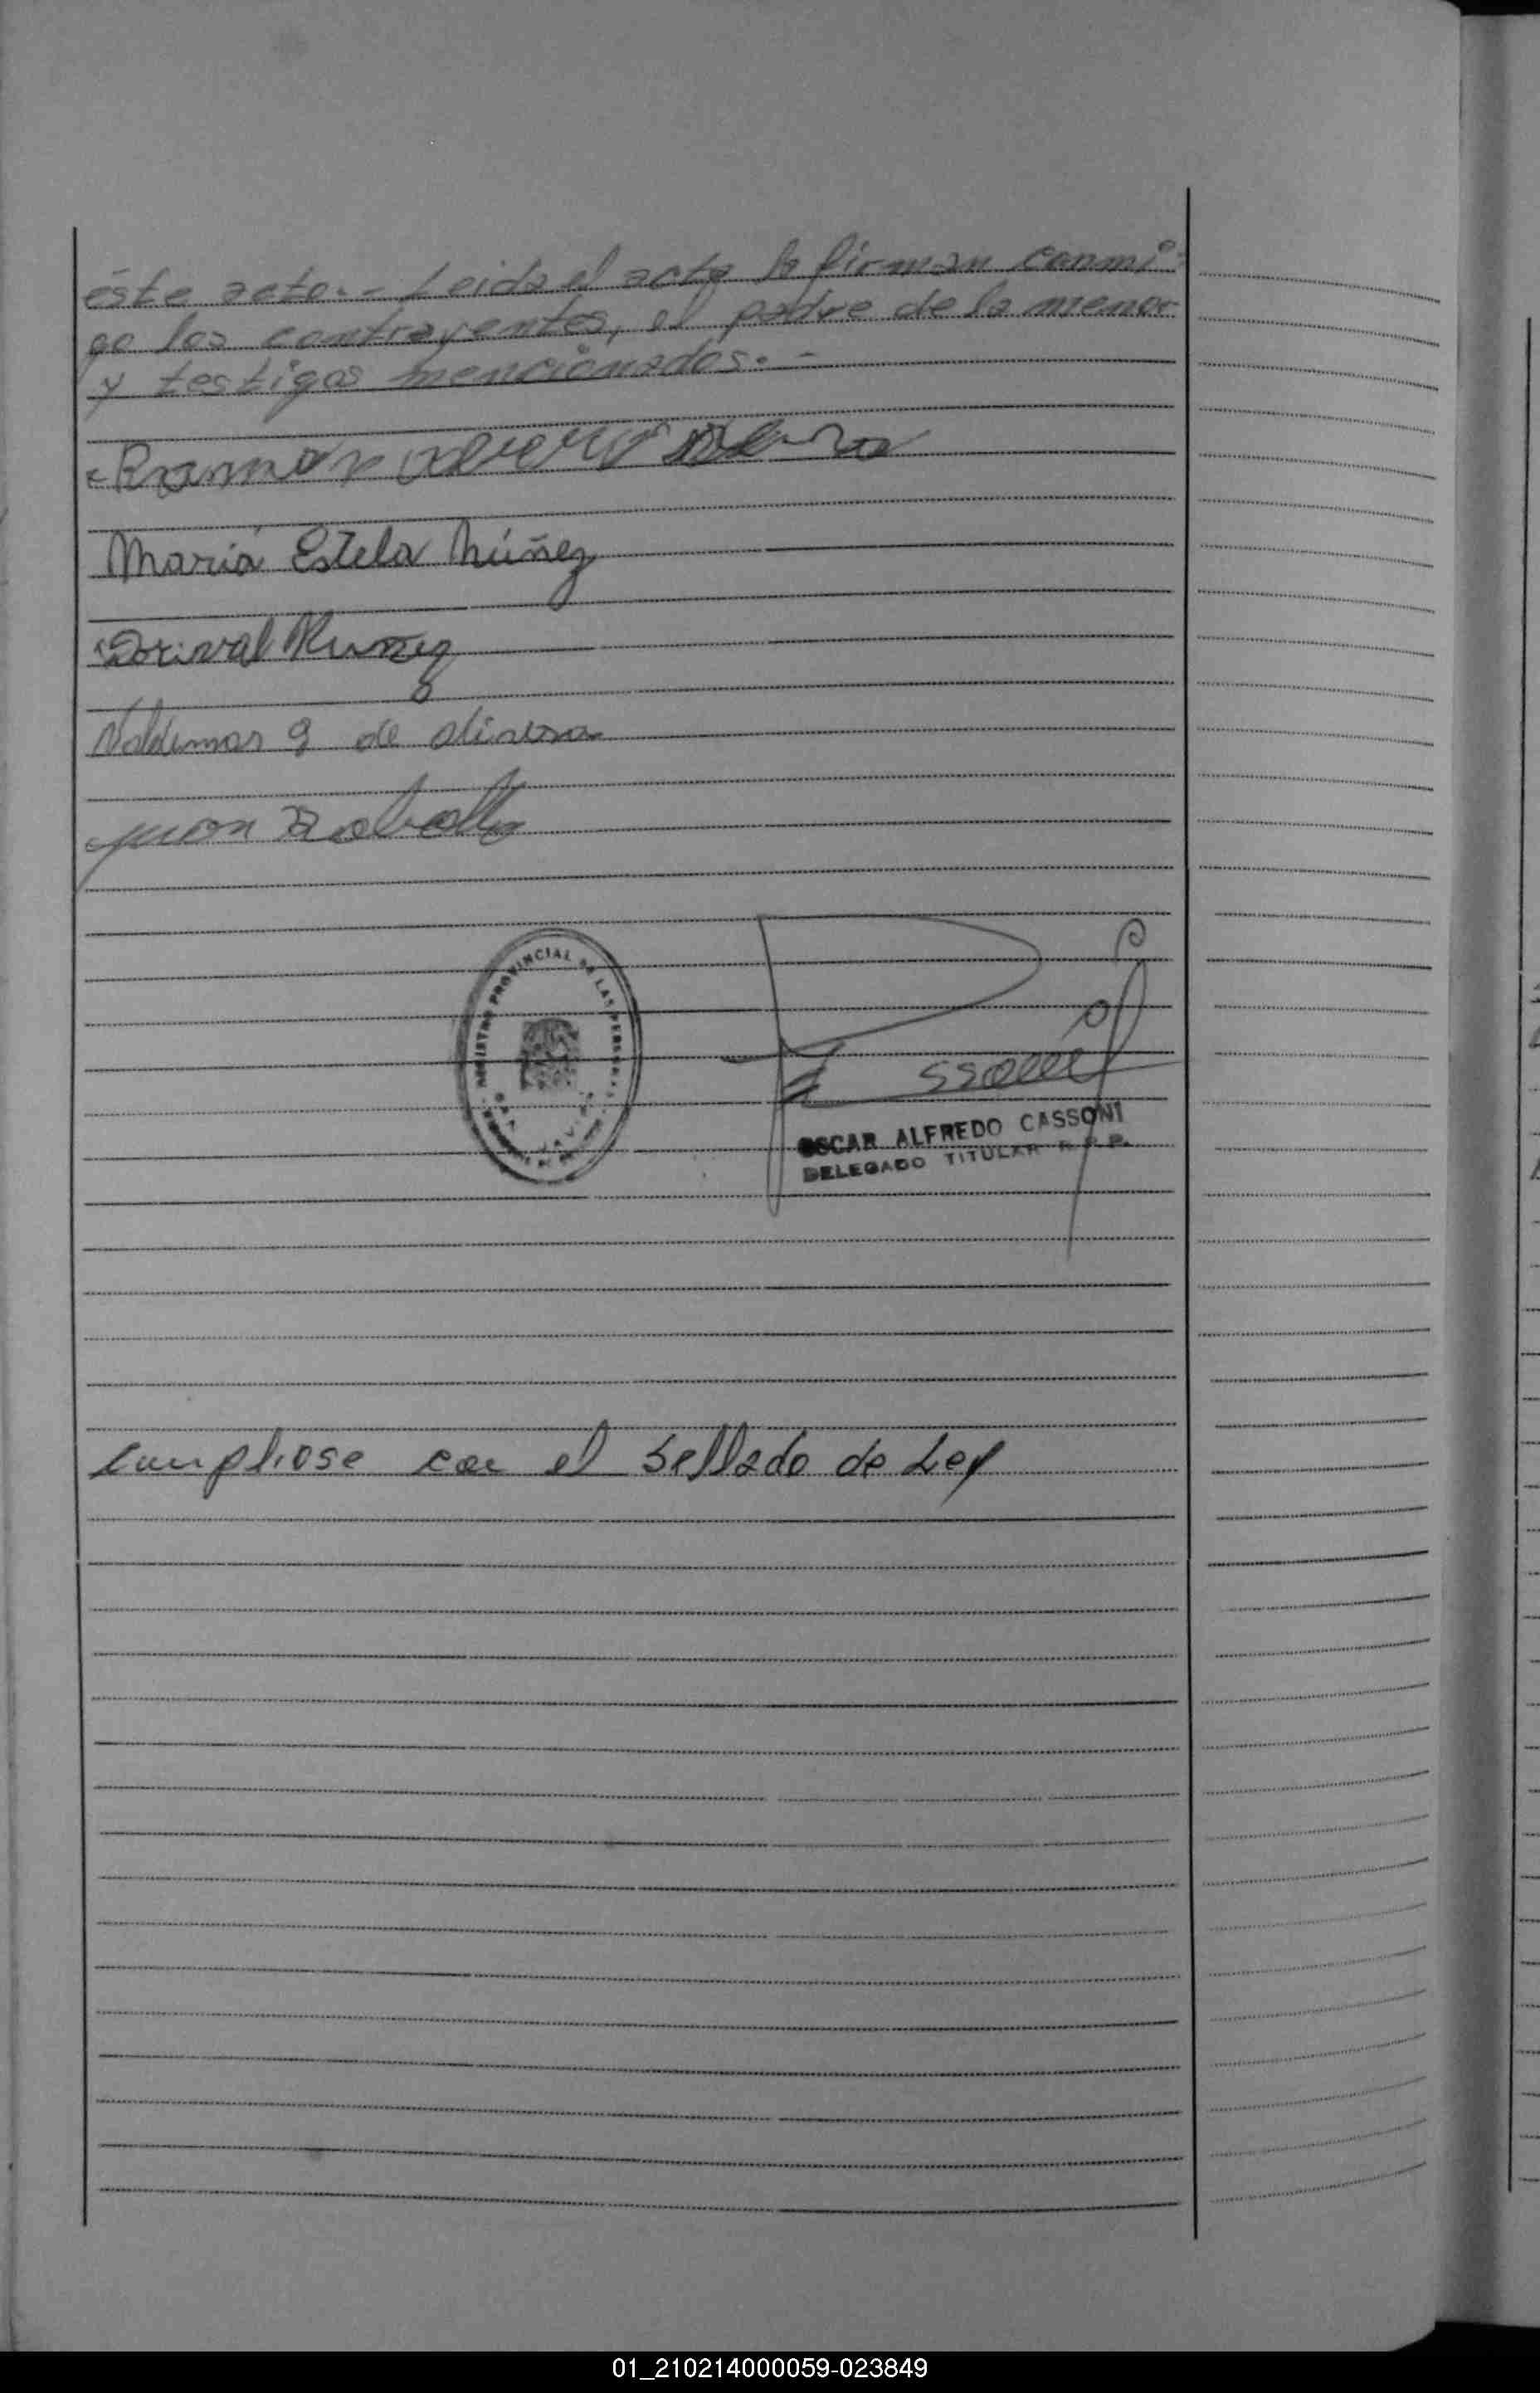 éste acto.- Leida el acta la firman conmi-
go los contrayentes, el padre de la menor
y testigos mencionados.-
Ramon
María Estela Núñez
Dorival Nunez
Valdemar g de olivera
Juan
REGISTRO PROVINCIAL DE LAS PERSONAS
OSCAR ALFREDO CASSONI
DELEGADO TITULAR R.P.P.
Cumpliose con el sellado de Ley
01_210214000059-023849